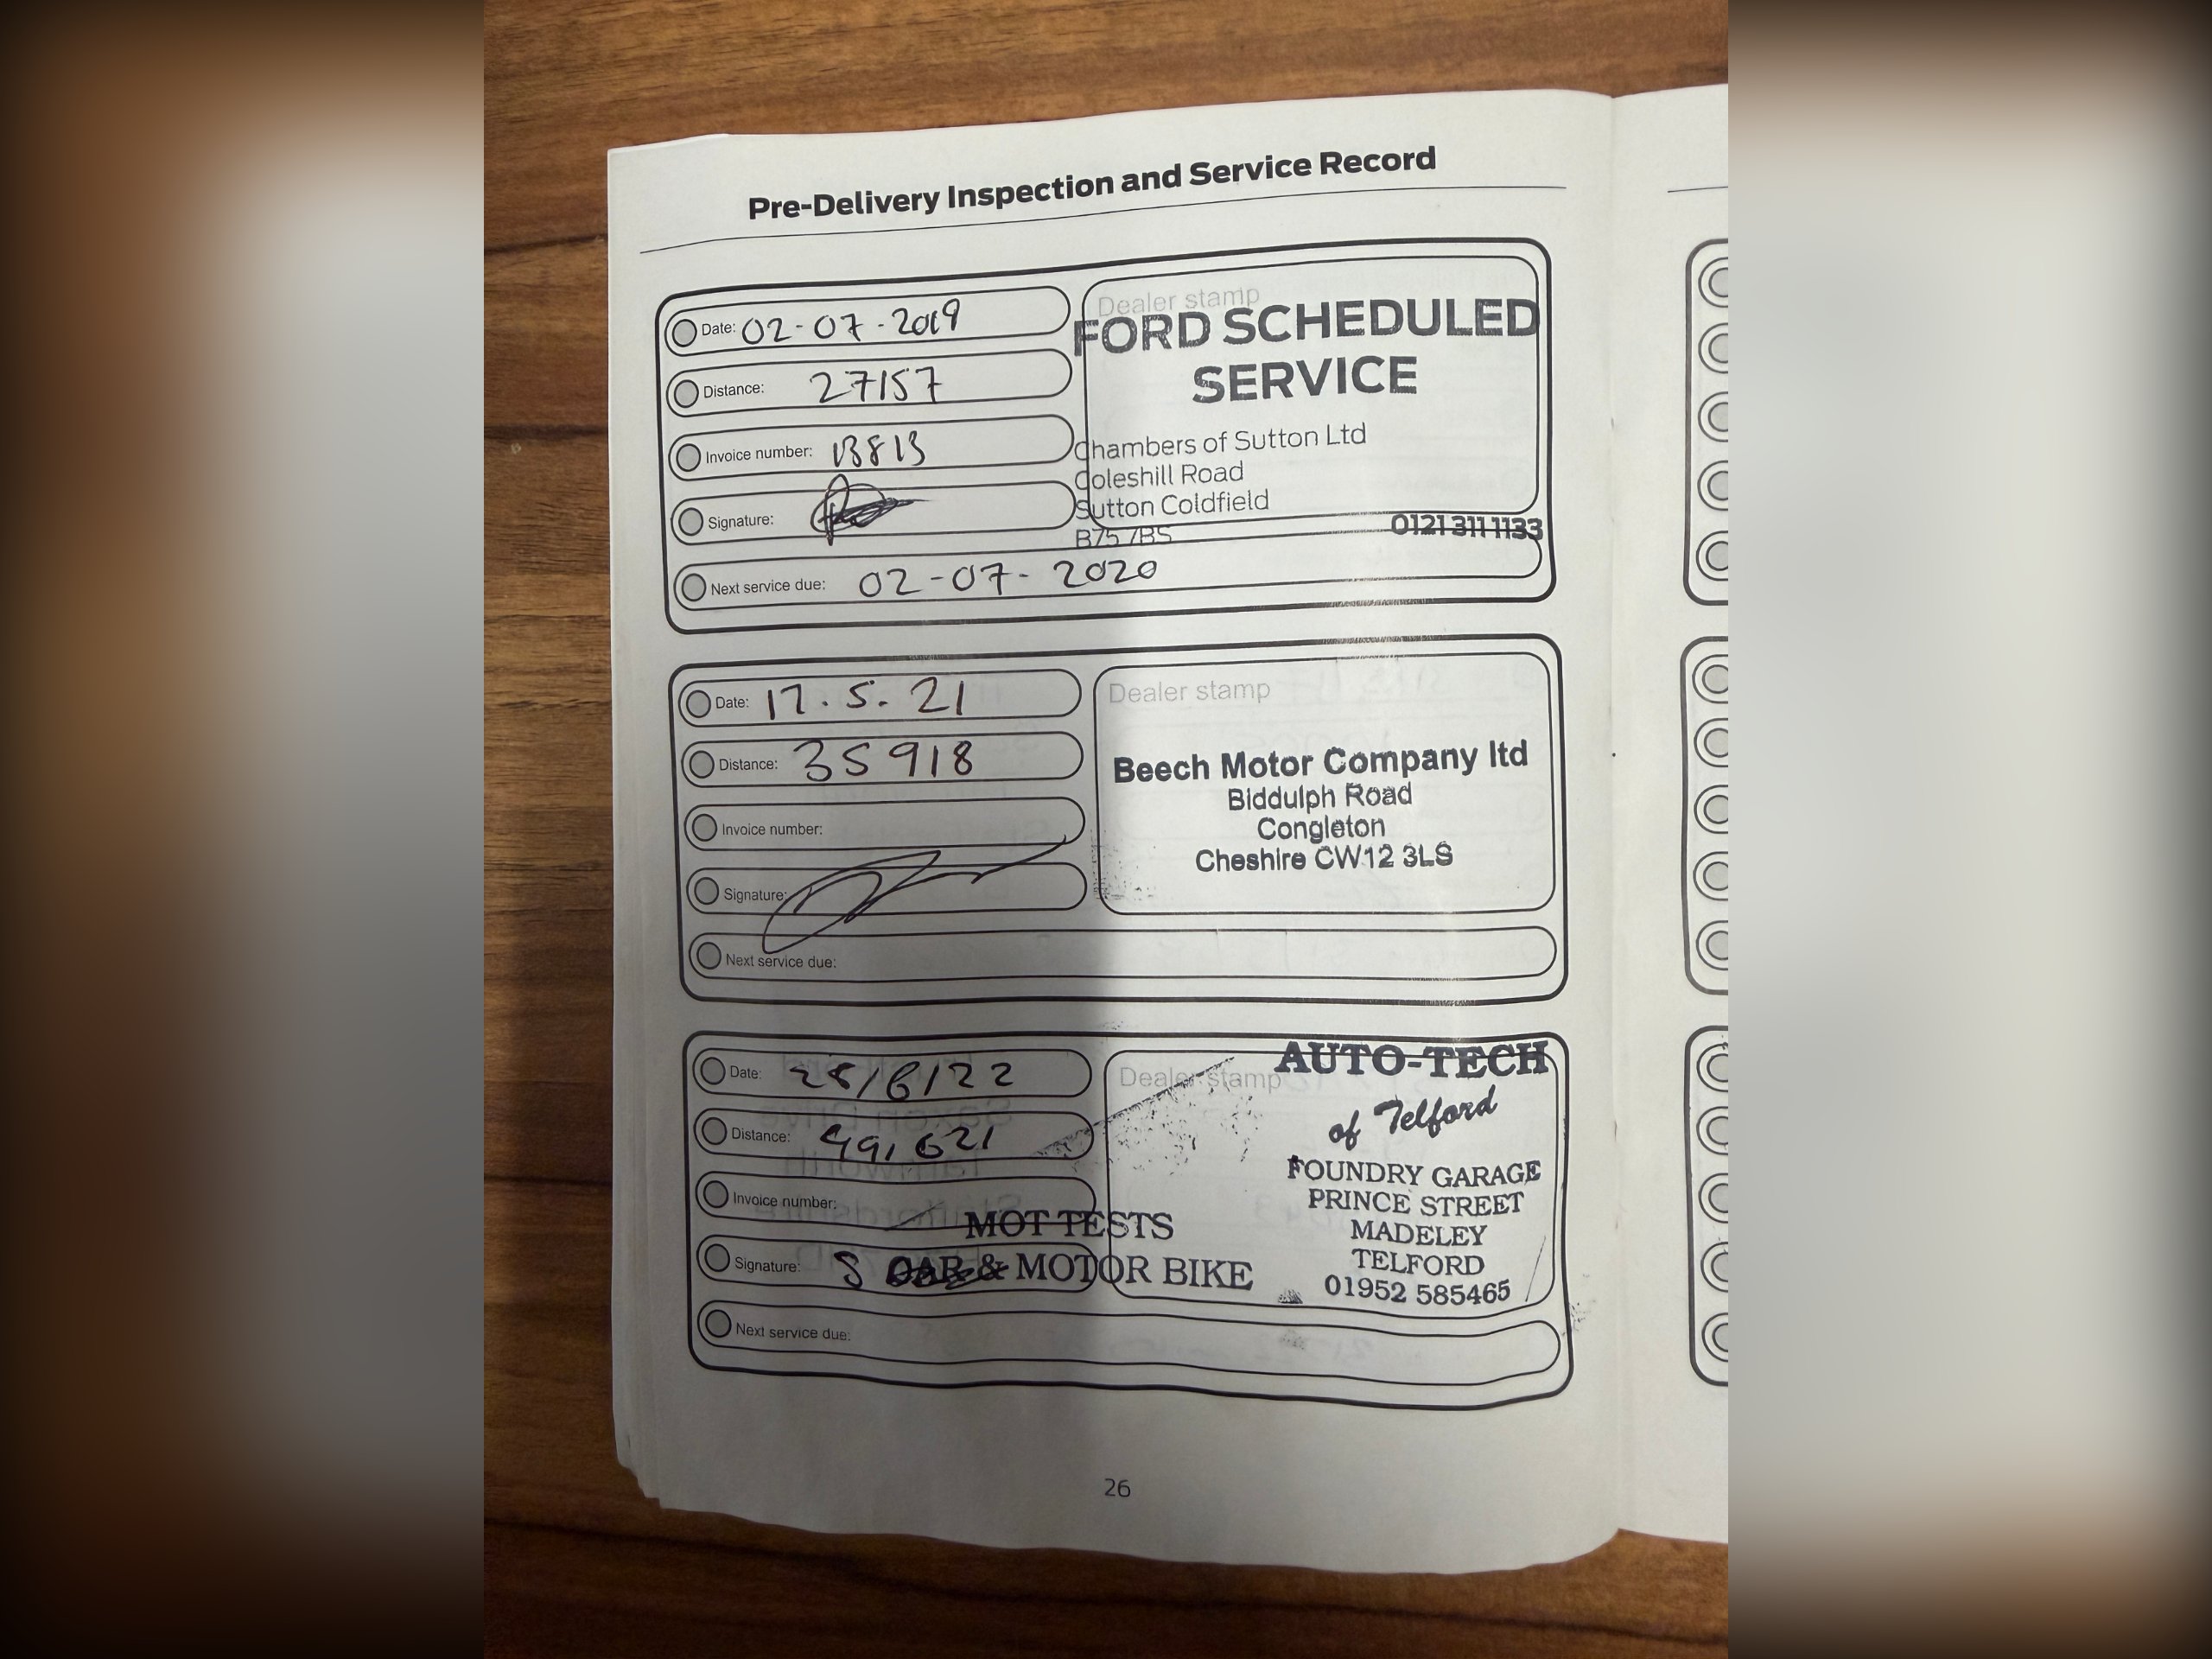 Pre-Delivery Inspection and Service Record
Date: 02-07-2019
Distance: 27157
Invoice number: 13813
Signature:
Next service due: 02-07-2020
Dealer stamp
FORD SCHEDULED
SERVICE
Chambers of Sutton Ltd
Coleshill Road
Sutton Coldfield
B75 7BS
0121 311 1133
Date: 17.5.21
Distance: 35918
Invoice number:
Signature:
Next service due:
Dealer stamp
Beech Motor Company ltd
Biddulph Road
Congleton
Cheshire CW12 3LS
Date:
Distance:
Invoice number:
Signature:
Next service due:
Dealer stamp
AUTO-TECH
of Telford
FOUNDRY GARAGE
PRINCE STREET
MADELEY
TELFORD
01952 585465
MOT TESTS
CAR & MOTOR BIKE
26